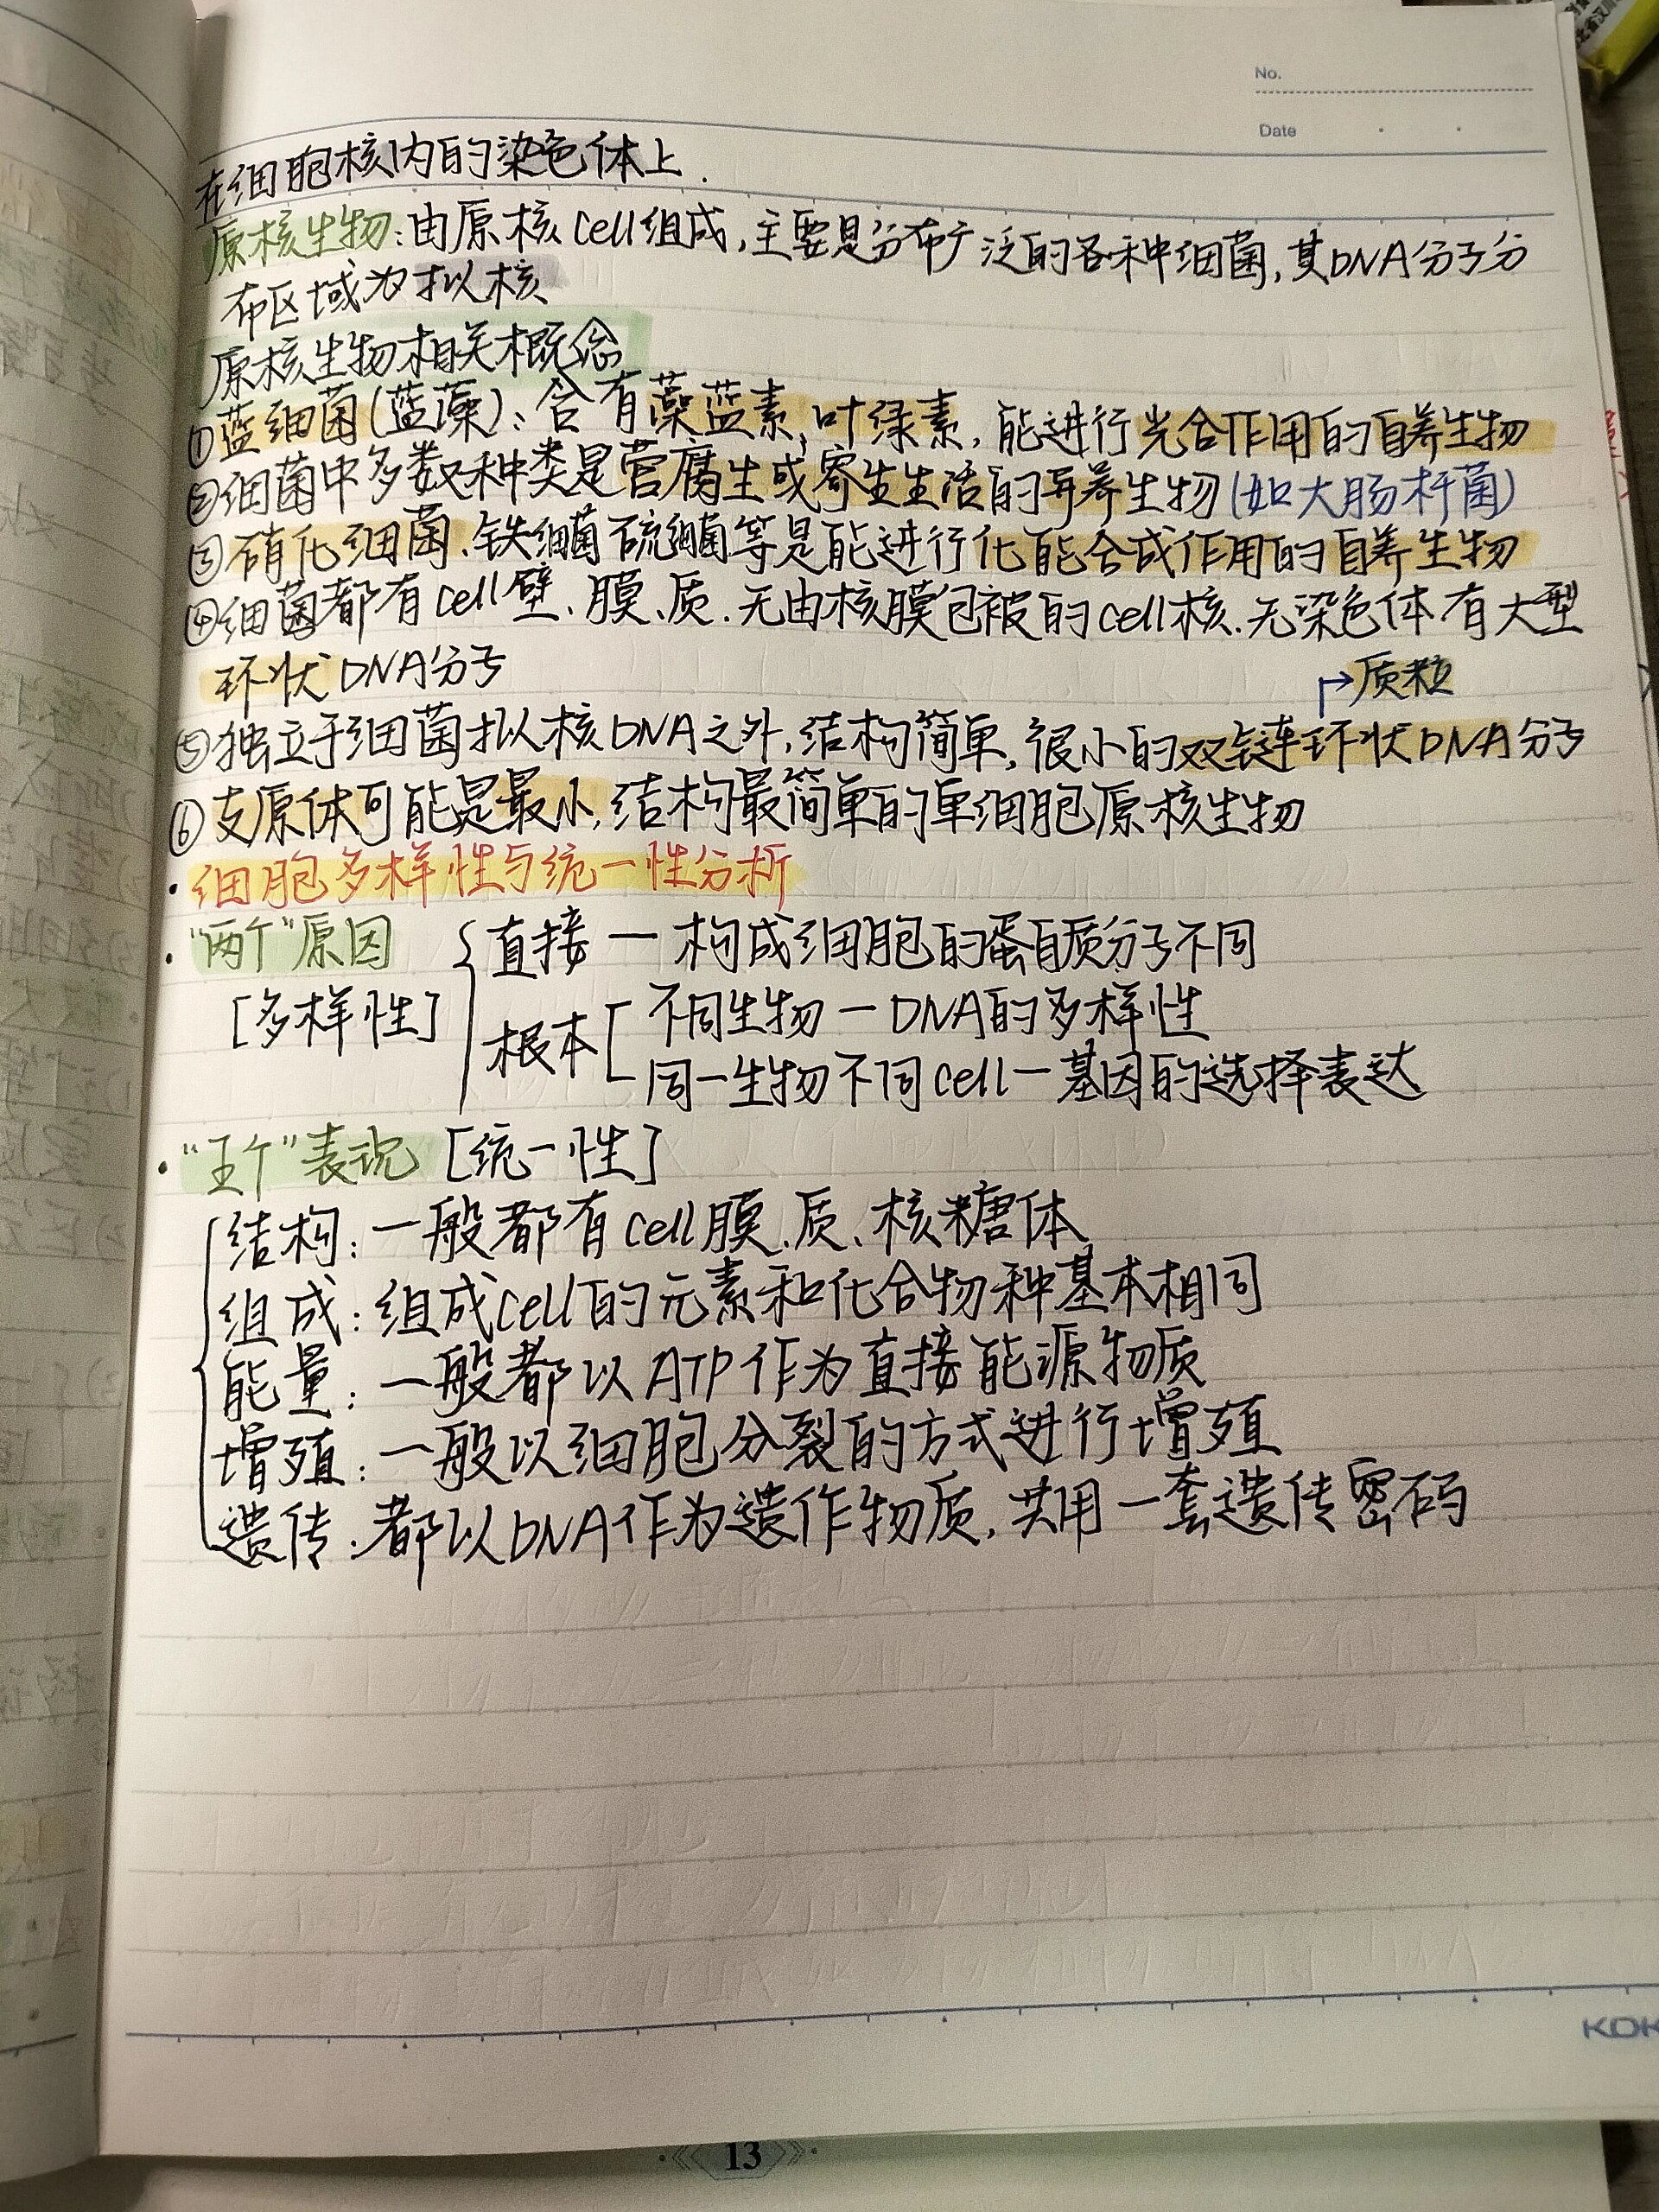 No.
Date
在细胞核内的染色体上.
原核生物:由原核cell组成,主要是分布广泛的各种细菌,其DNA分子分
布区域为拟核
原核生物相关概念
①蓝细菌(蓝藻)、含有藻蓝素,叶绿素,能进行光合作用的自养生物
②细菌中多数种类是营腐生或寄生生活的异养生物(如大肠杆菌)
③硝化细菌、铁细菌硫细菌等是能进行化能合成作用的自养生物
④细菌都有cell壁、膜、质.无由核膜包被的cell核.无染色体有大型
环状DNA分子
→质粒
⑤独立于细菌拟核DNA之外,结构简单,很小的双链环状DNA分子
⑥支原体可能是最小,结构最简单的单细胞原核生物
·细胞多样性与统一性分析
·"两个"原因 直接—构成细胞的蛋白质分子不同
[多样性] 根本 不同生物—DNA的多样性
同一生物不同cell—基因的选择表达
·"五个"表现 [统一性]
结构:一般都有cell膜、质、核糖体
组成:组成cell的元素和化合物种基本相同
能量:一般都以ATP作为直接能源物质
增殖:一般以细胞分裂的方式进行增殖
遗传:都以DNA作为遗作物质,共用一套遗传密码
13